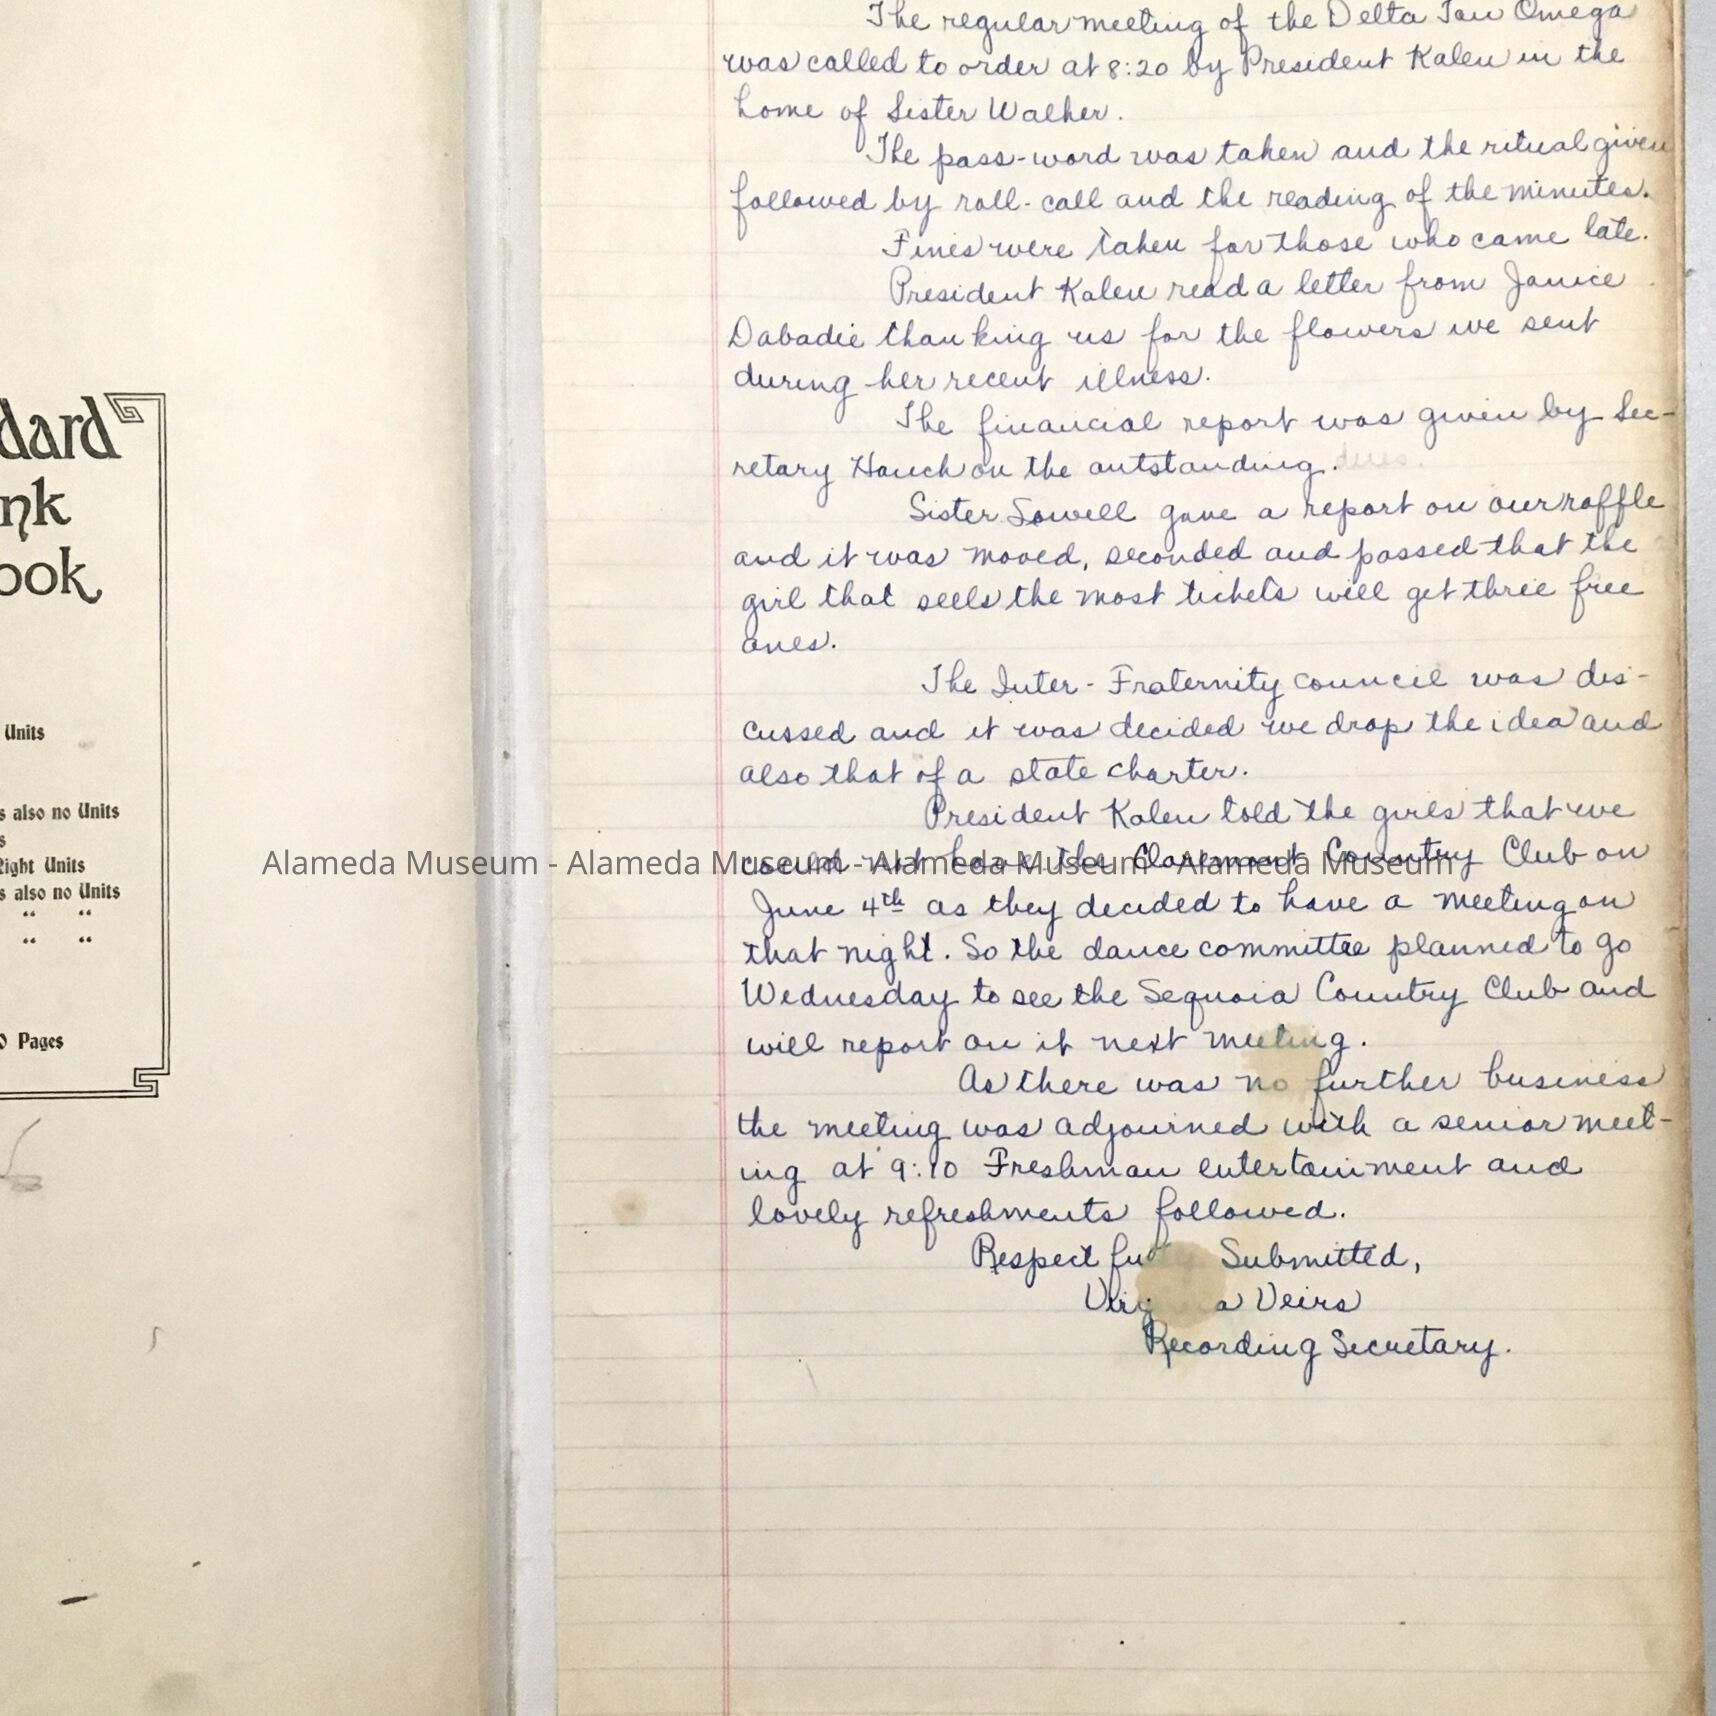 dard
nk
ook
Units
s also no Units
s
Right Units
s also no Units
“ “
“ “
0 Pages
The regular meeting of the Delta Tau Omega
was called to order at 8:20 by President Kalen in the
home of Sister Walker.
The pass-word was taken and the ritual given
followed by roll-call and the reading of the minutes.
Fines were taken for those who came late.
President Kalen read a letter from Janice
Dabadie thanking us for the flowers we sent
during her recent illness.
The financial report was given by Sec-
retary Hauch on the outstanding. dues.
Sister Sowell gave a report on our raffle
and it was moved, seconded and passed that the
girl that sells the most tickets will get three free
ones.
The Inter-Fraternity council was dis-
cussed and it was decided we drop the idea and
also that of a state charter.
President Kalen told the girls that we
could not have the Claremont Country Club on
Alameda Museum - Alameda Museum - Alameda Museum - Alameda Museum
June 4th as they decided to have a meeting on
that night. So the dance committee planned to go
Wednesday to see the Sequoia Country Club and
will report on it next meeting.
As there was no further business
the meeting was adjourned with a senior meet-
ing at 9:10 Freshman entertainment and
lovely refreshments followed.
Respectfu Submitted,
Virg a Veirs
Recording Secretary.